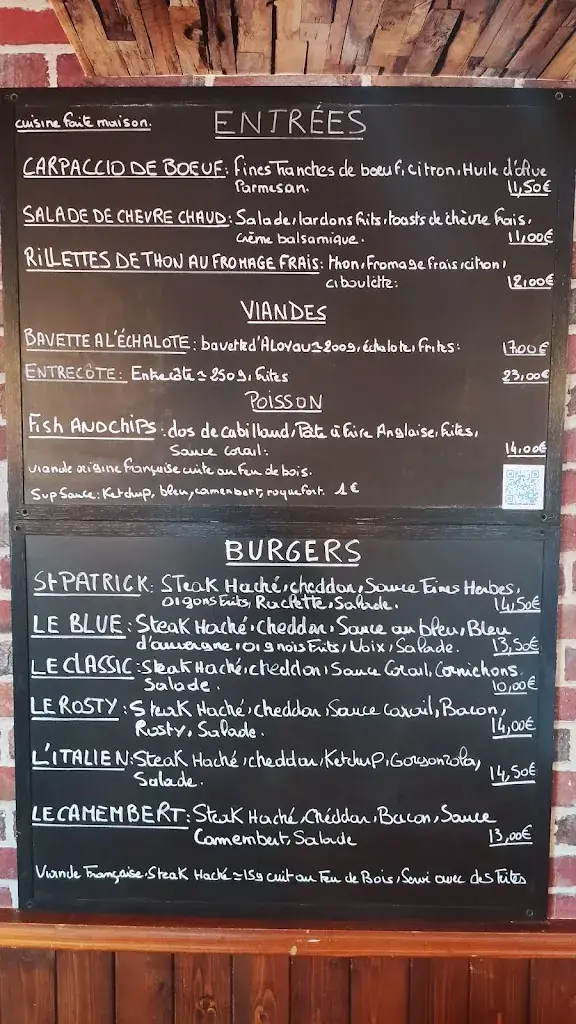 cuisine faite maison.
ENTRÉES
CARPACCIO DE BOEUF: Fines Tranches de boeuf, citron, Huile d'olive
Parmesan. 11,50€
SALADE DE CHEVRE CHAUD: Salade, lardons frits, toasts de chèvre frais,
Crème balsamique. 11,00€
RILLETTES DE THON AU FROMAGE FRAIS: thon, Fromage frais, citron,
ciboulette: 12,00€
VIANDES
BAVETTE A L'ÉCHALOTE: bavette d'Aloyau ≃ 200g, échalote, Frites: 17,00€
ENTRECÔTE: Entrecôte ≃ 250g, frites 23,00€
POISSON
FISH AND CHIPS: dos de cabillaud, Pâte à frire Anglaise, frites,
Sauce corail: 14,00€
viande origine française cuite au Feu de bois.
Sup Sauce: Ketchup, bleu, camembert, roquefort. 1€
BURGERS
St PATRICK: STeak Haché, cheddar, Sauce Fines Herbes,
oignons frits, Raclette, Salade. 14,50€
LE BLUE: Steak Haché, Cheddar, Sauce au bleu, Bleu
d'auvergne, oignois Frits, Noix, Salade. 13,50€
LE CLASSIC: Steak Haché, cheddar, Sauce Corail, Cornichons.
Salade. 10,00€
LE ROSTY: Steak Haché, cheddar, Sauce corail, Bacon,
Rosty, Salade. 14,00€
L'ITALIEN: Steak Haché, cheddar, Ketchup, Gorgonzola,
Salade. 14,50€
LE CAMEMBERT: Steak Haché, Chéddar, Bacon, Sauce
Camembert, Salade 13,00€
Viande Française. Steak Haché ≃ 15g cuit au Feu de Bois, Servi avec des Frites